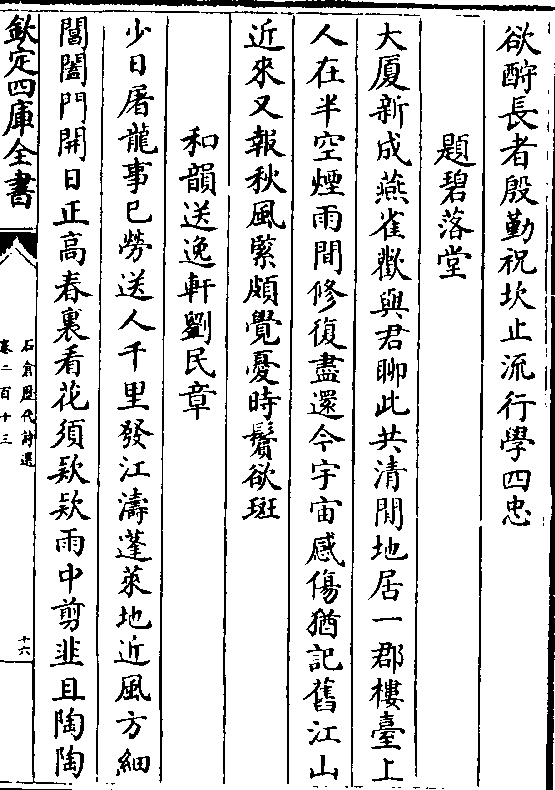 欲酧長者殷勤祝坎止流行學四忠
題碧落堂
大厦新成燕雀歡與君聊此共清閒地居一郡樓臺上
人在半空煙雨間修復盡還今宇宙感傷猶記舊江山
近來又報秋風緊頗覺憂時鬢欲斑
和韻送逸軒劉民章
少日屠龍事已勞送人千里發江濤蓬萊地近風方細
閶闔門開日正高春裏看花須欵欵雨中剪韭且陶陶
欽定四庫全書
石倉歴代詩選
卷二百十三
十六